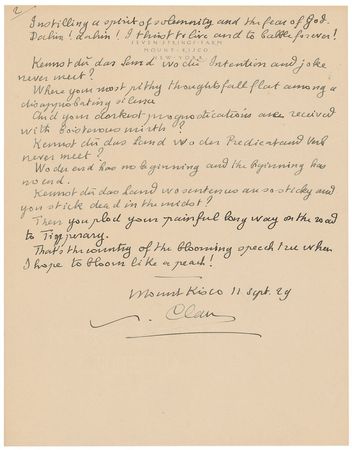 2/
Instilling a spirit of solemnity and the fear of God.
Dahin! dahin! I thirst to live and to battle forever!
SEVEN SPRINGS FARM
MOUNT KISCO
NEW YORK
Kennst dú das Land wo dú Intention and joke
never meet?
Where your most pithy thoughts fall flat among a
disapprobating silence
And your darkest prognostications are received
with boisterous mirth?
Kennst dú das Land wo der Predicat and Verb
never meet?
Wo der end has no beginning and the Beginning has
no end.
Kennst dú das Land wo sentences are so sticky and
you stick dead in the midst?
Then you plod your painful long way on the road
to Tipperary.
That's the country of the blooming speech tree where
I hope to bloom like a peach!
Mount Kisco 11 Sept. 29